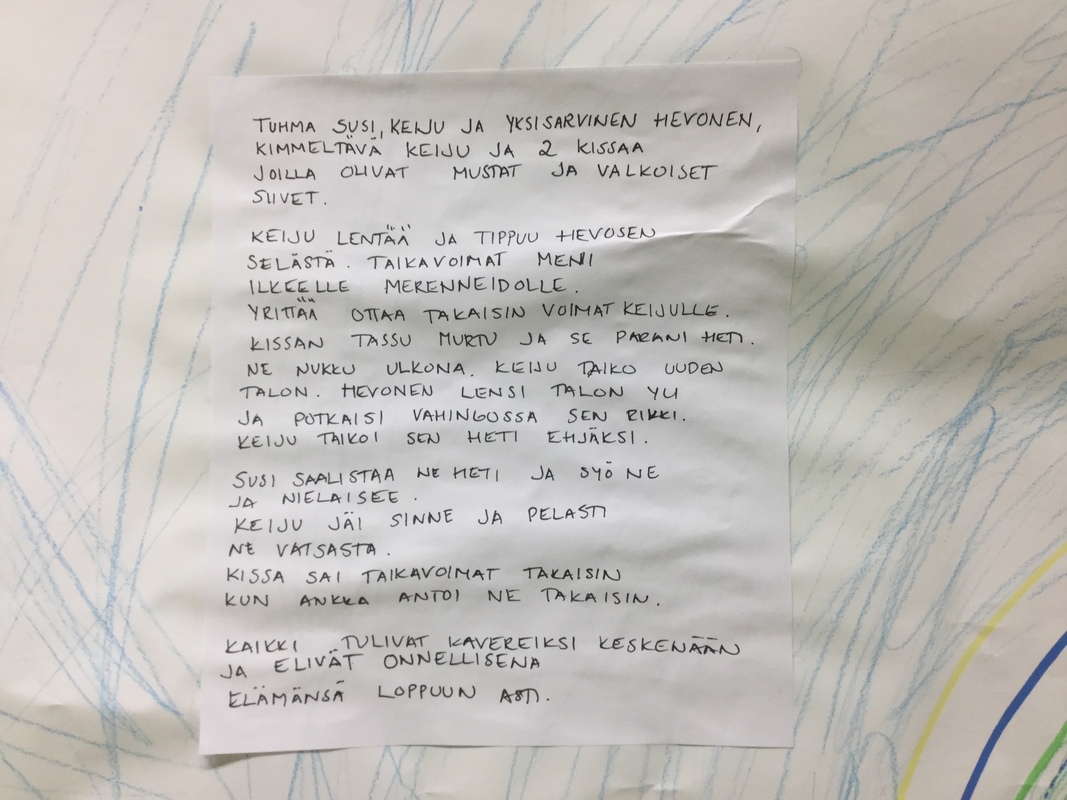 TUHMA SUSI, KEIJU JA YKSISARVINEN HEVONEN,
KIMMELTÄVÄ KEIJU JA 2 KISSAA
JOILLA OLIVAT MUSTAT JA VALKOISET
SIIVET.
KEIJU LENTÄÄ JA TIPPUU HEVOSEN
SELÄSTÄ. TAIKAVOIMAT MENI
ILKEELLE MERENNEIDOLLE.
YRITTÄÄ OTTAA TAKAISIN VOIMAT KEIJULLE.
KISSAN TASSU MURTU JA SE PARANI HETI.
NE NUKKU ULKONA. KEIJU TAIKO UUDEN
TALON. HEVONEN LENSI TALON YLI
JA POTKAISI VAHINGOSSA SEN RIKKI.
KEIJU TAIKOI SEN HETI EHJÄKSI.
SUSI SAALISTAA NE HETI JA SYÖ NE
JA NIELAISEE.
KEIJU JÄI SINNE JA PELASTI
NE VATSASTA.
KISSA SAI TAIKAVOIMAT TAKAISIN
KUN ANKKA ANTOI NE TAKAISIN.
KAIKKI TULIVAT KAVEREIKSI KESKENÄÄN
JA ELIVÄT ONNELLISENA
ELÄMÄNSÄ LOPPUUN ASTI.